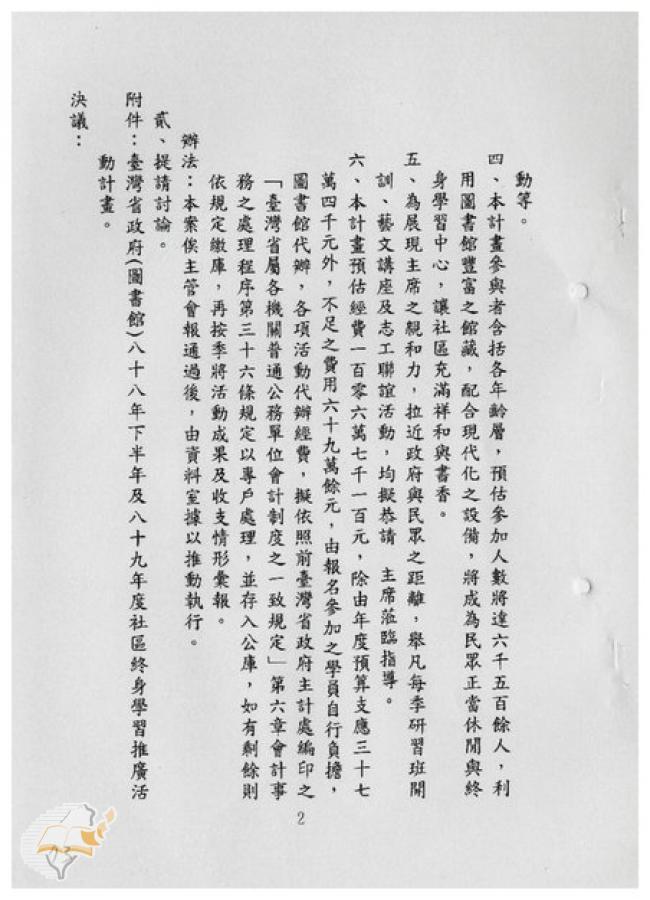 動等。
四、本計畫參與者含括各年齡層，預估參加人數將達六千五百餘人，利
用圖書館豐富之館藏，配合現代化之設備，將成為民眾正當休閒與終
身學習中心，讓社區充滿祥和與書香。
五、為展現主席之親和力，拉近政府與民眾之距離，舉凡每季研習班開
訓、藝文講座及志工聯誼活動，均擬恭請　主席蒞臨指導。
六、本計畫預估經費一百零六萬七千一百元，除由年度預算支應三十七
萬四千元外，不足之費用六十九萬餘元，由報名參加之學員自行負擔，
圖書館代辦，各項活動代辦經費，擬依照前臺灣省政府主計處編印之
「臺灣省屬各機關普通公務單位會計制度之一致規定」第六章會計事
務之處理程序第三十六條規定以專戶處理，並存入公庫，如有剩餘則
依規定繳庫，再按季將活動成果及收支情形彙報。
辦法：本案俟主管會報通過後，由資料室據以推動執行。
貳、提請討論。
附件：臺灣省政府(圖書館)八十八年下半年及八十九年度社區終身學習推廣活
動計畫。
決議：
2